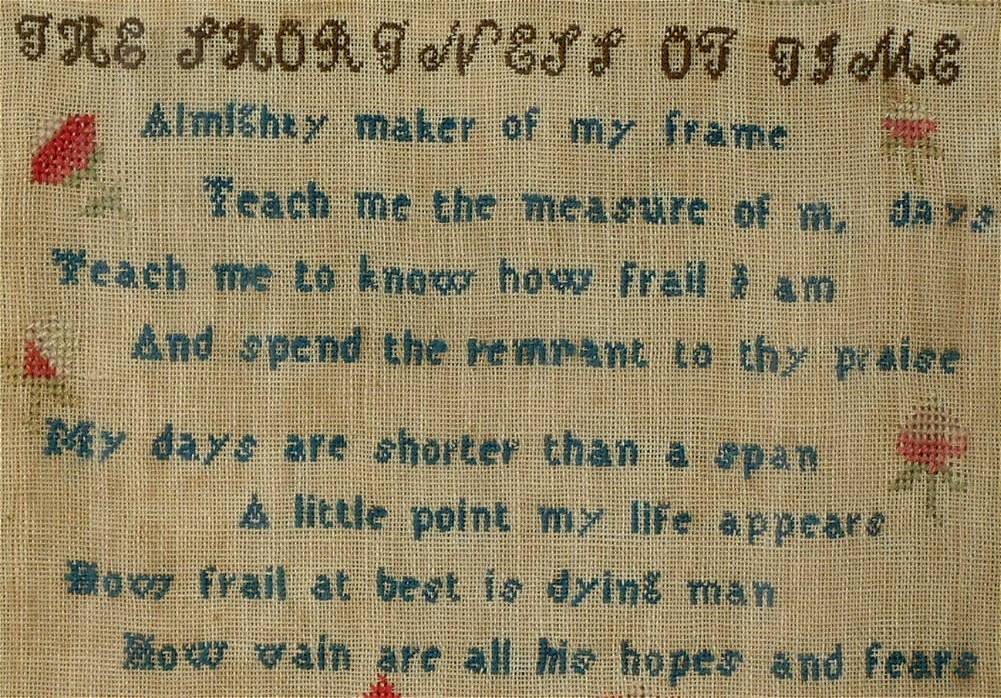 THE SHORTNESS OF TIME
Almighty maker of my frame
Teach me the measure of m, days
Teach me to know how frail I am
And spend the remnant to thy praise
My days are shorter than a span
A little point my life appears
How frail at best is dying man
How vain are all his hopes and fears